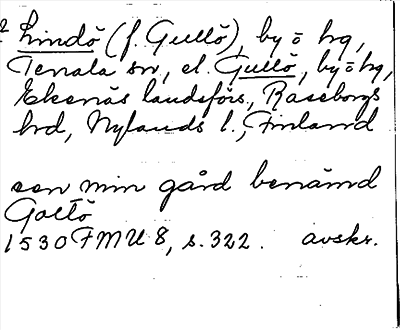 ? Lindö (f. Gullö), by o hg,
Tenala sn, el. Gullö, by o hg,
Ekenäs landsförs., Raseborgs
hrd, Nylands l., Finland
een min gård benämd
Goltö
1530 FMU 8, s. 322. avskr.